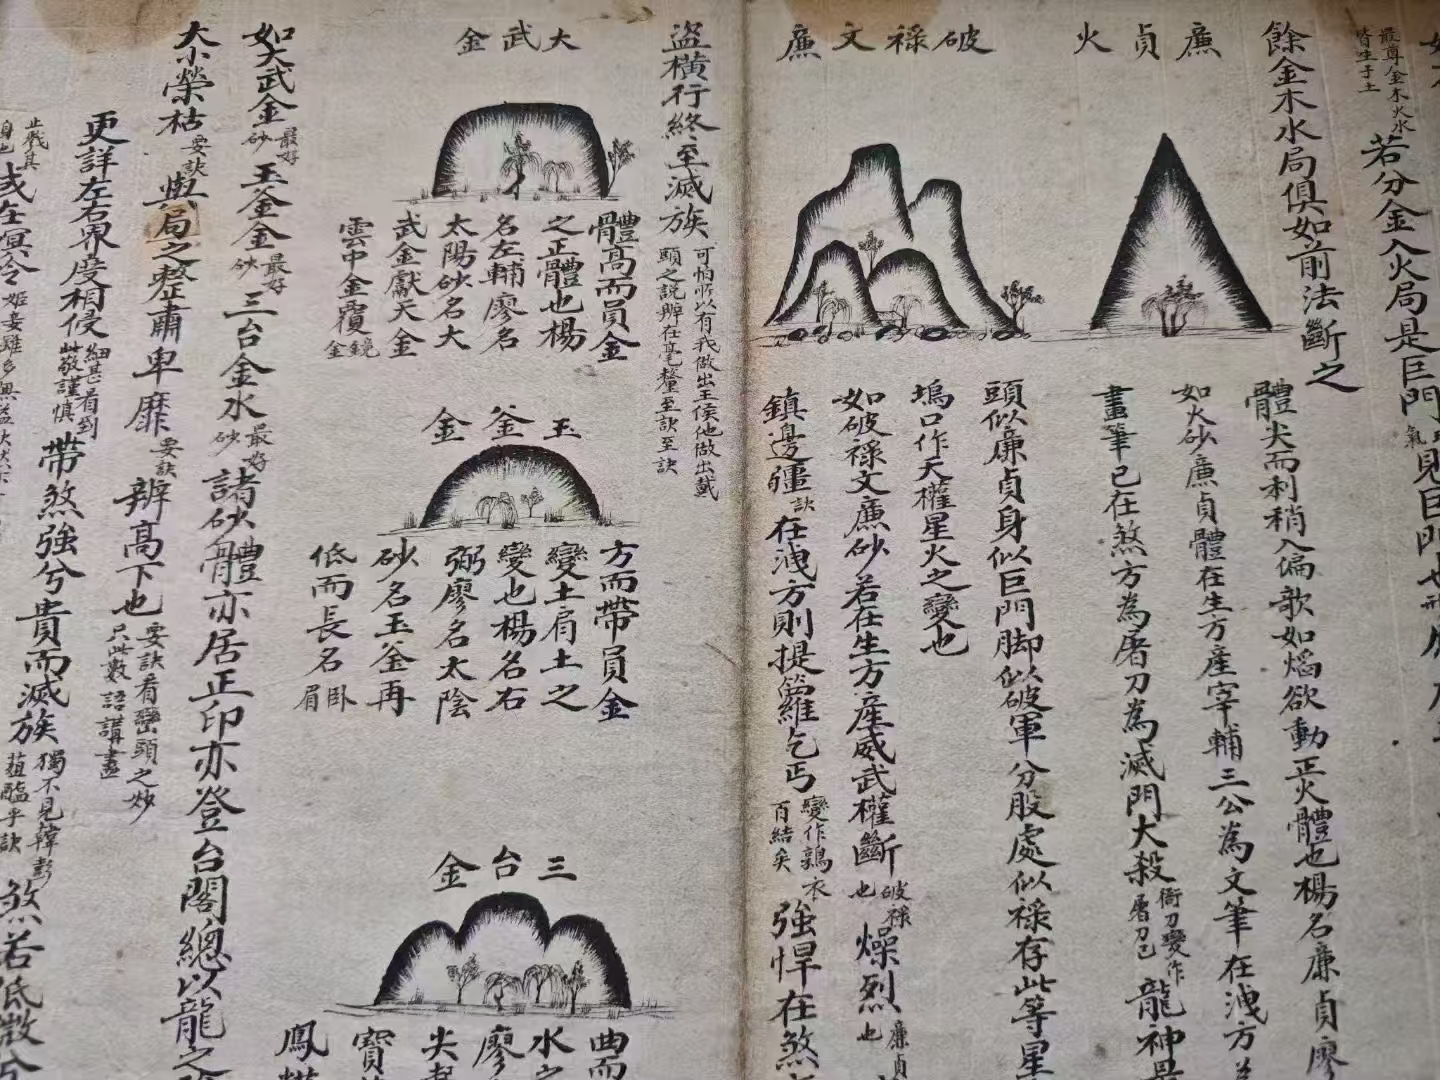 最尊金木火水
皆生于土
若分金入火局是巨門
見巨門也
餘金木水局俱如前法斷之
廉貞火
體尖而利稍入偏歌如熖欲動正火體也楊名廉貞廖
如火砂廉貞體在生方產宰輔三公為文筆在洩方
畫筆已在煞方為屠刀為滅門大殺
衙刀變作
屠刀已
龍神
破祿文廉
頭似廉貞身似巨門脚似破軍分股處似祿存此等星
塢口作天權星火之變也
如破祿文廉砂若在生方產威武權斷
破祿
也
燥烈
廉貞
也
鎮邊疆
訣
在洩方則提籮乞丐
變作鶉衣
百結矣
強悍在煞
盜橫行終至滅族
可怕所以有我做出王侯他做出賊
頭之說辨在毫釐至訣至訣
大武金
體高而員金
之正體也楊
名左輔廖名
太陽砂名大
武金獻天金
雲中金覆鏡
金
玉釜金
方而帶員金
變土肩土之
變也楊名右
弼廖名太陰
砂名玉釜再
低而長名臥
眉
三台金
曲而
水之
廖
尖
寶
鳳
如大武金
最好
砂
玉釜金
最好
砂
三台金水
最好
砂
諸砂體亦居正印亦登台閣總以龍之
大小榮枯
要訣
與局之整肅卑靡
要訣
辨高下也
要訣看巒頭之妙
只此數語講盡
更詳左右界度相侵
細甚看到
此敬謹慎
帶煞強兮貴而滅族
獨不見韓彭
菹醢乎訣
煞若低微兮
止戕其
自也
或在冥令
姬妾雖多無益